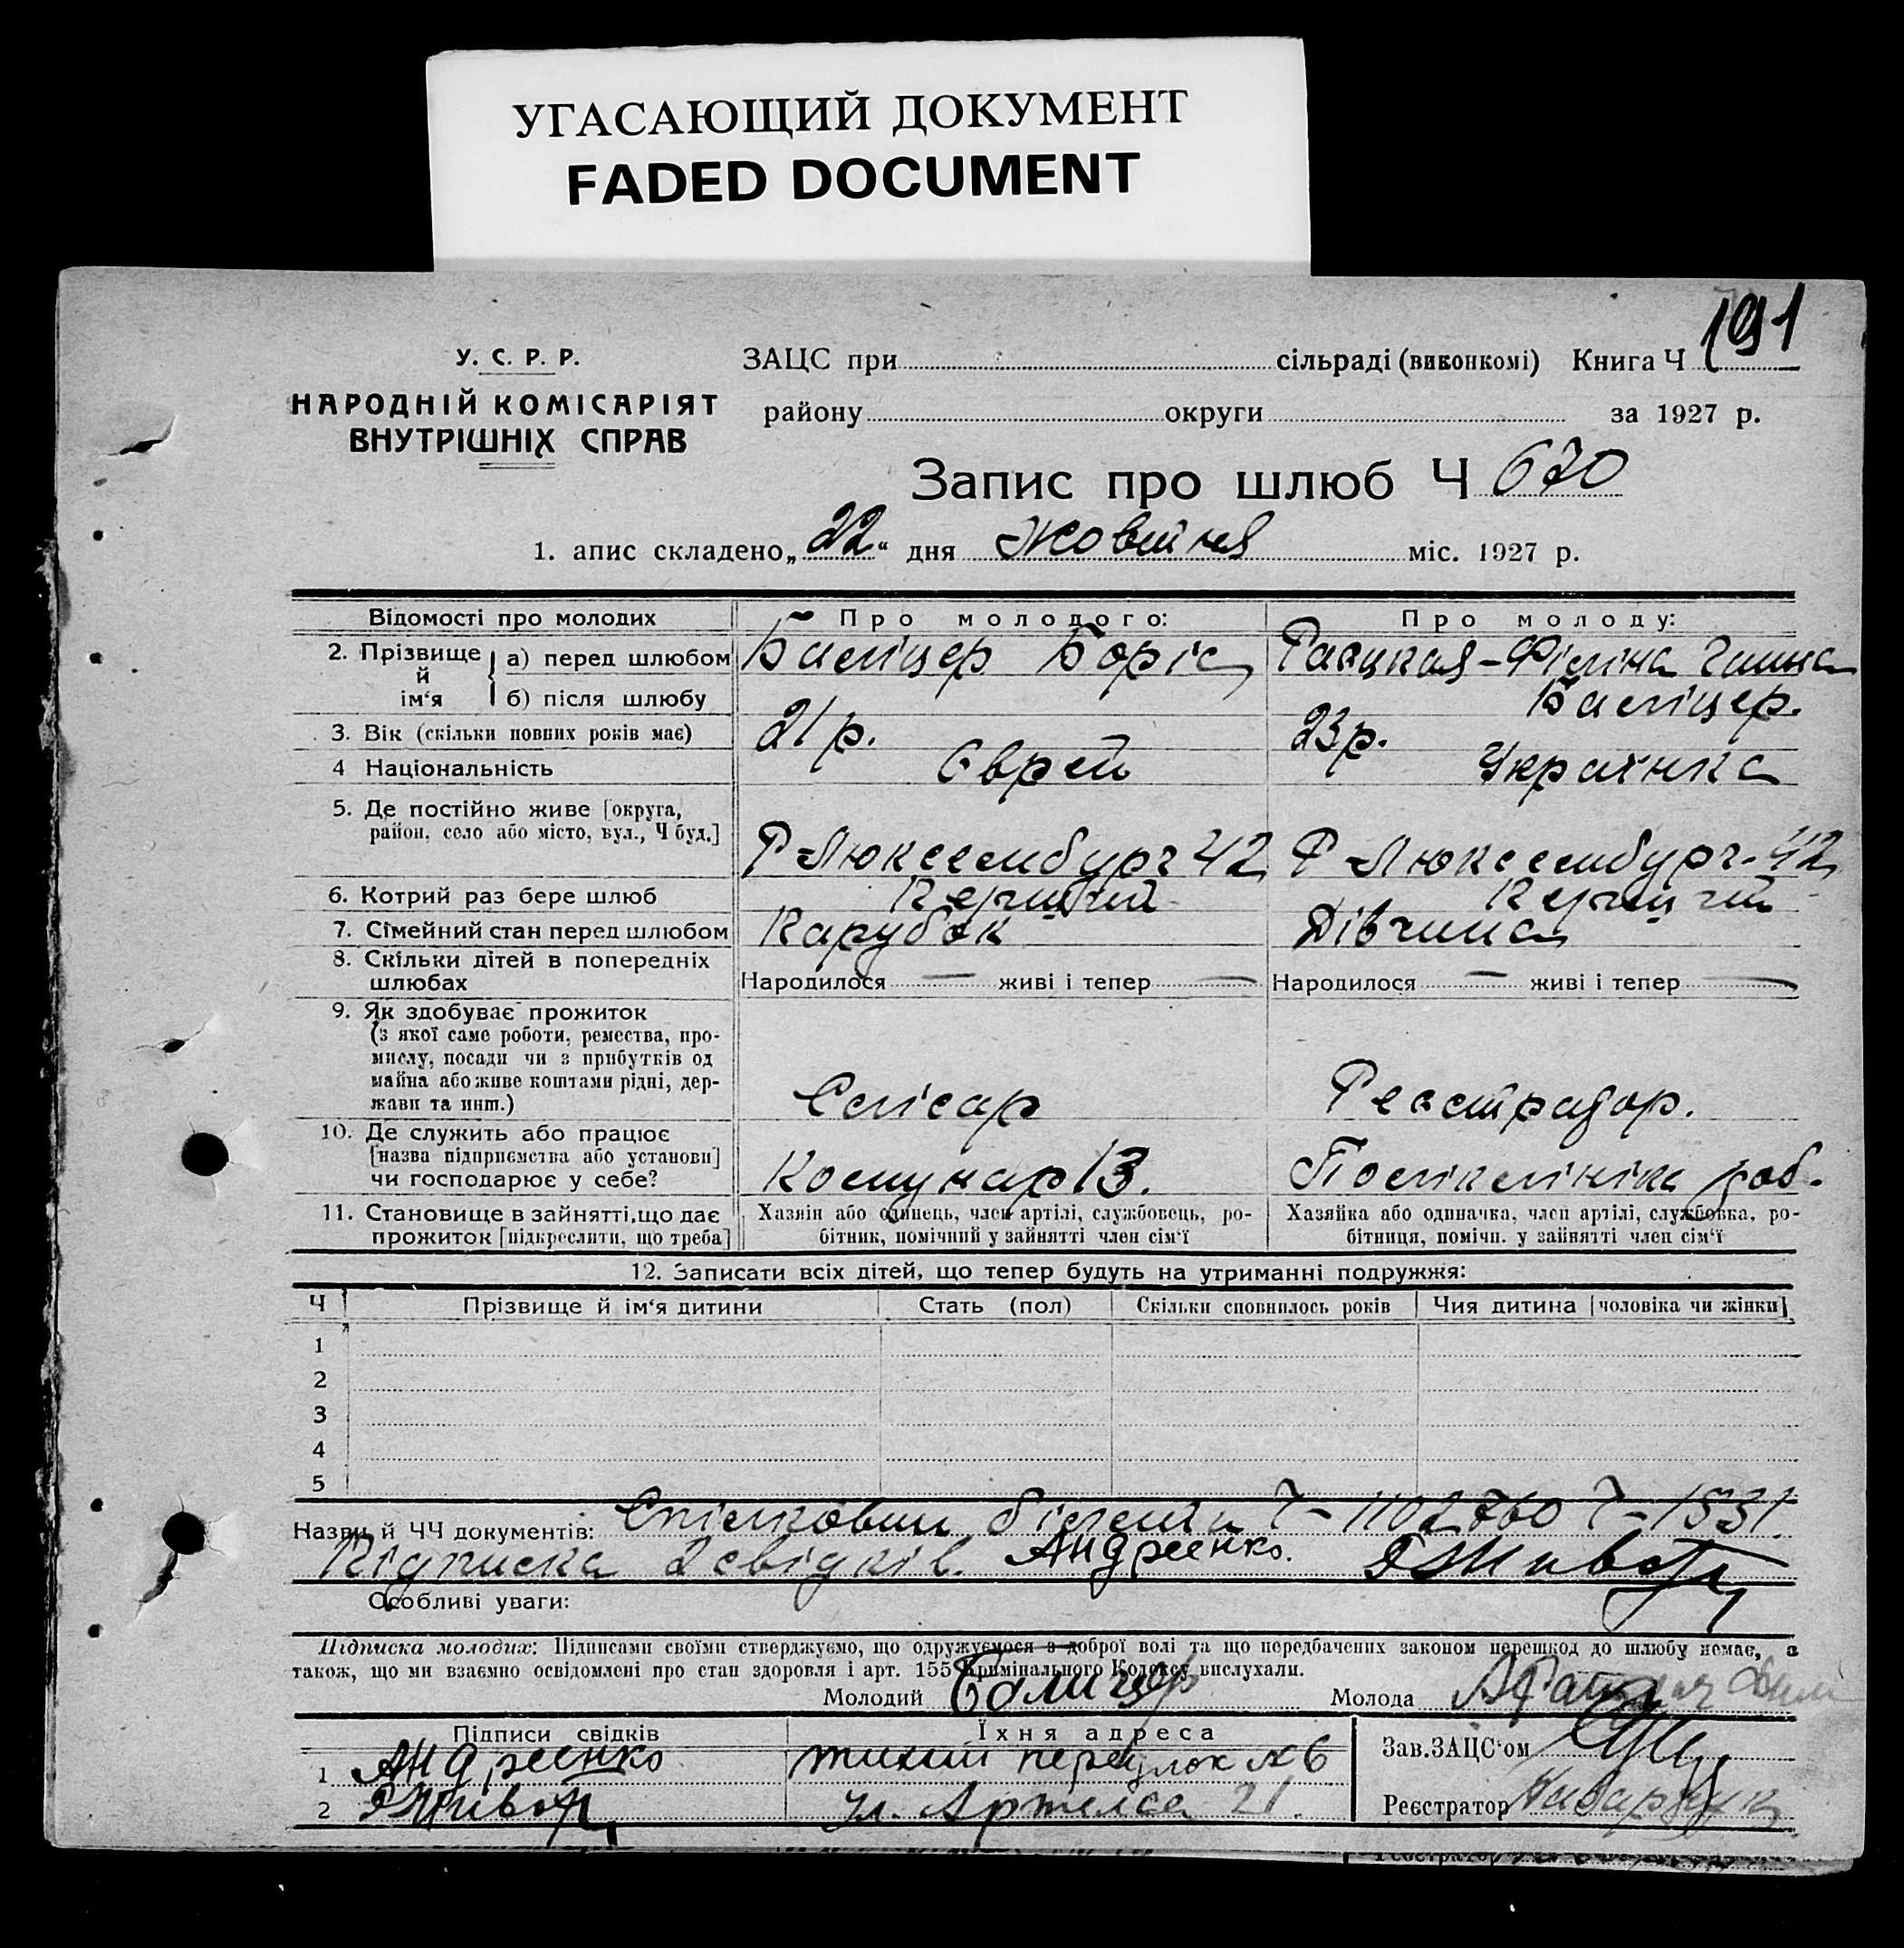 УГАСАЮЩИЙ ДОКУМЕНТ
FADED DOCUMENT
191
У. С. Р. Р.
НАРОДНІЙ КОМІСАРІЯТ
ВНУТРІШНІХ СПРАВ
ЗАЦС при сільраді (виконкомі) Книга Ч
району округи за 1927 р.
Запис про шлюб Ч 670
1. апис складено „22“ дня Жовтня міс. 1927 р.
Відомості про молодих Про молодого: Про молоду:
2. Прізвище й ім‘я { а) перед шлюбом Баліцер Боріс Рацкая-Філіна
б) після шлюбу Баліцер.
3. Вік (скільки повних років має) 21 р. 23 р.
4 Національність Єврей Українка
5. Де постійно живе [округа,
район, село або місто, вул., Ч буд.] Р Люксембург 42 Р Люксембург-42
6. Котрий раз бере шлюб Перший Перший
7. Сімейний стан перед шлюбом Парубок Дівчина
8. Скільки дітей в попередніх
шлюбах Народилося — живі і тепер — Народилося — живі і тепер —
9. Як здобуває прожиток
(з якої саме роботи, ремества, про-
мислу, посади чи з прибутків од
майна або живе коштами рідні, дер-
жави та инш.) Слісар Реєстратор.
10. Де служить або працює
[назва підприємства або установи]
чи господарює у себе? Комунар Поліклініка роб.
11. Становище в зайнятті, що дає
прожиток [підкреслити, що треба]
Хазяїн або одинець, член артілі, службовець, ро-
бітник, помічний у зайнятті член сім‘ї
Хазяйка або одиначка, член артілі, службовка, ро-
бітниця, помічн. у зайнятті член сім‘ї
12. Записати всіх дітей, що тепер будуть на утриманні подружжя:
Ч Прізвище й ім‘я дитини Стать (пол) Скільки сповнилось років Чия дитина [чоловіка чи жінки]
1
2
3
4
5
Назви й ЧЧ документів: Спілкови білети Ч-1102760 Ч-1531.
Підписка 2 свідків. Андреенко.
Особливі уваги:
Підписка молодих: Підписами своїми стверджуємо, що одружуємося з доброї волі та що передбачених законом перешкод до шлюбу немає, а
також, що ми взаємно освідомлені про стан здоровля і арт. 155 Кримінального Кодексу вислухали.
Молодий Балицер Молода
Підписи свідків Їхня адреса
1 Андреенко Тихий переулок №6
2 ул. Артема 21.
Зав. ЗАЦС‘ом
Реєстратор